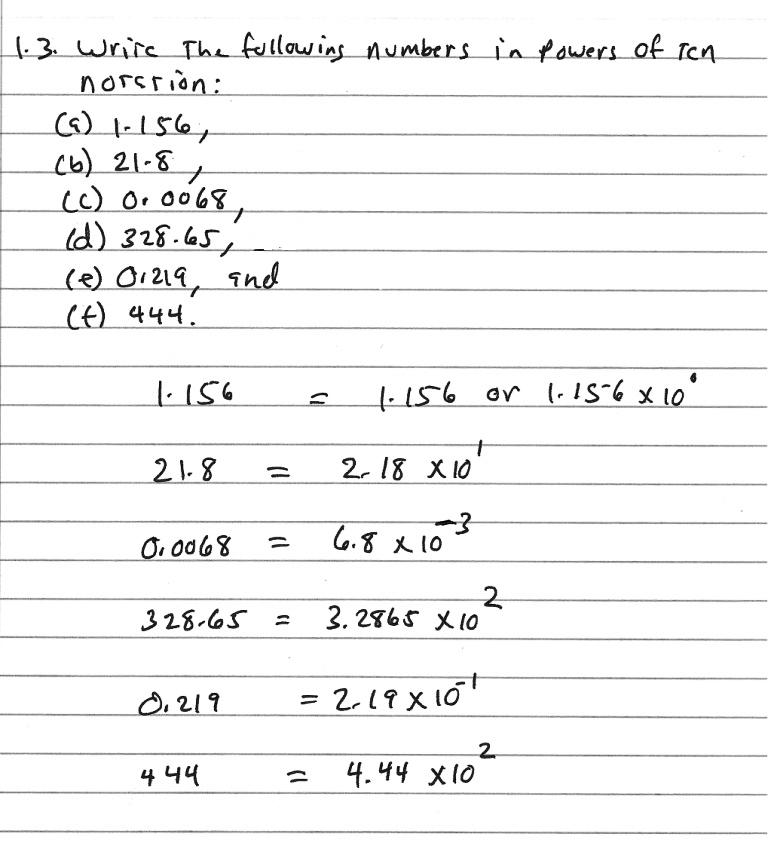 1.3. Write The following numbers in powers of Ten
notation:
(a) 1.156,
(b) 21.8,
(c) 0.0068,
(d) 328.65,
(e) 0.219, and
(f) 444.
1.156 = 1.156 or 1.156 x 10⁰
21.8 = 2.18 x 10¹
0.0068 = 6.8 x 10⁻³
328.65 = 3.2865 x 10²
0.219 = 2.19 x 10⁻¹
444 = 4.44 x 10²